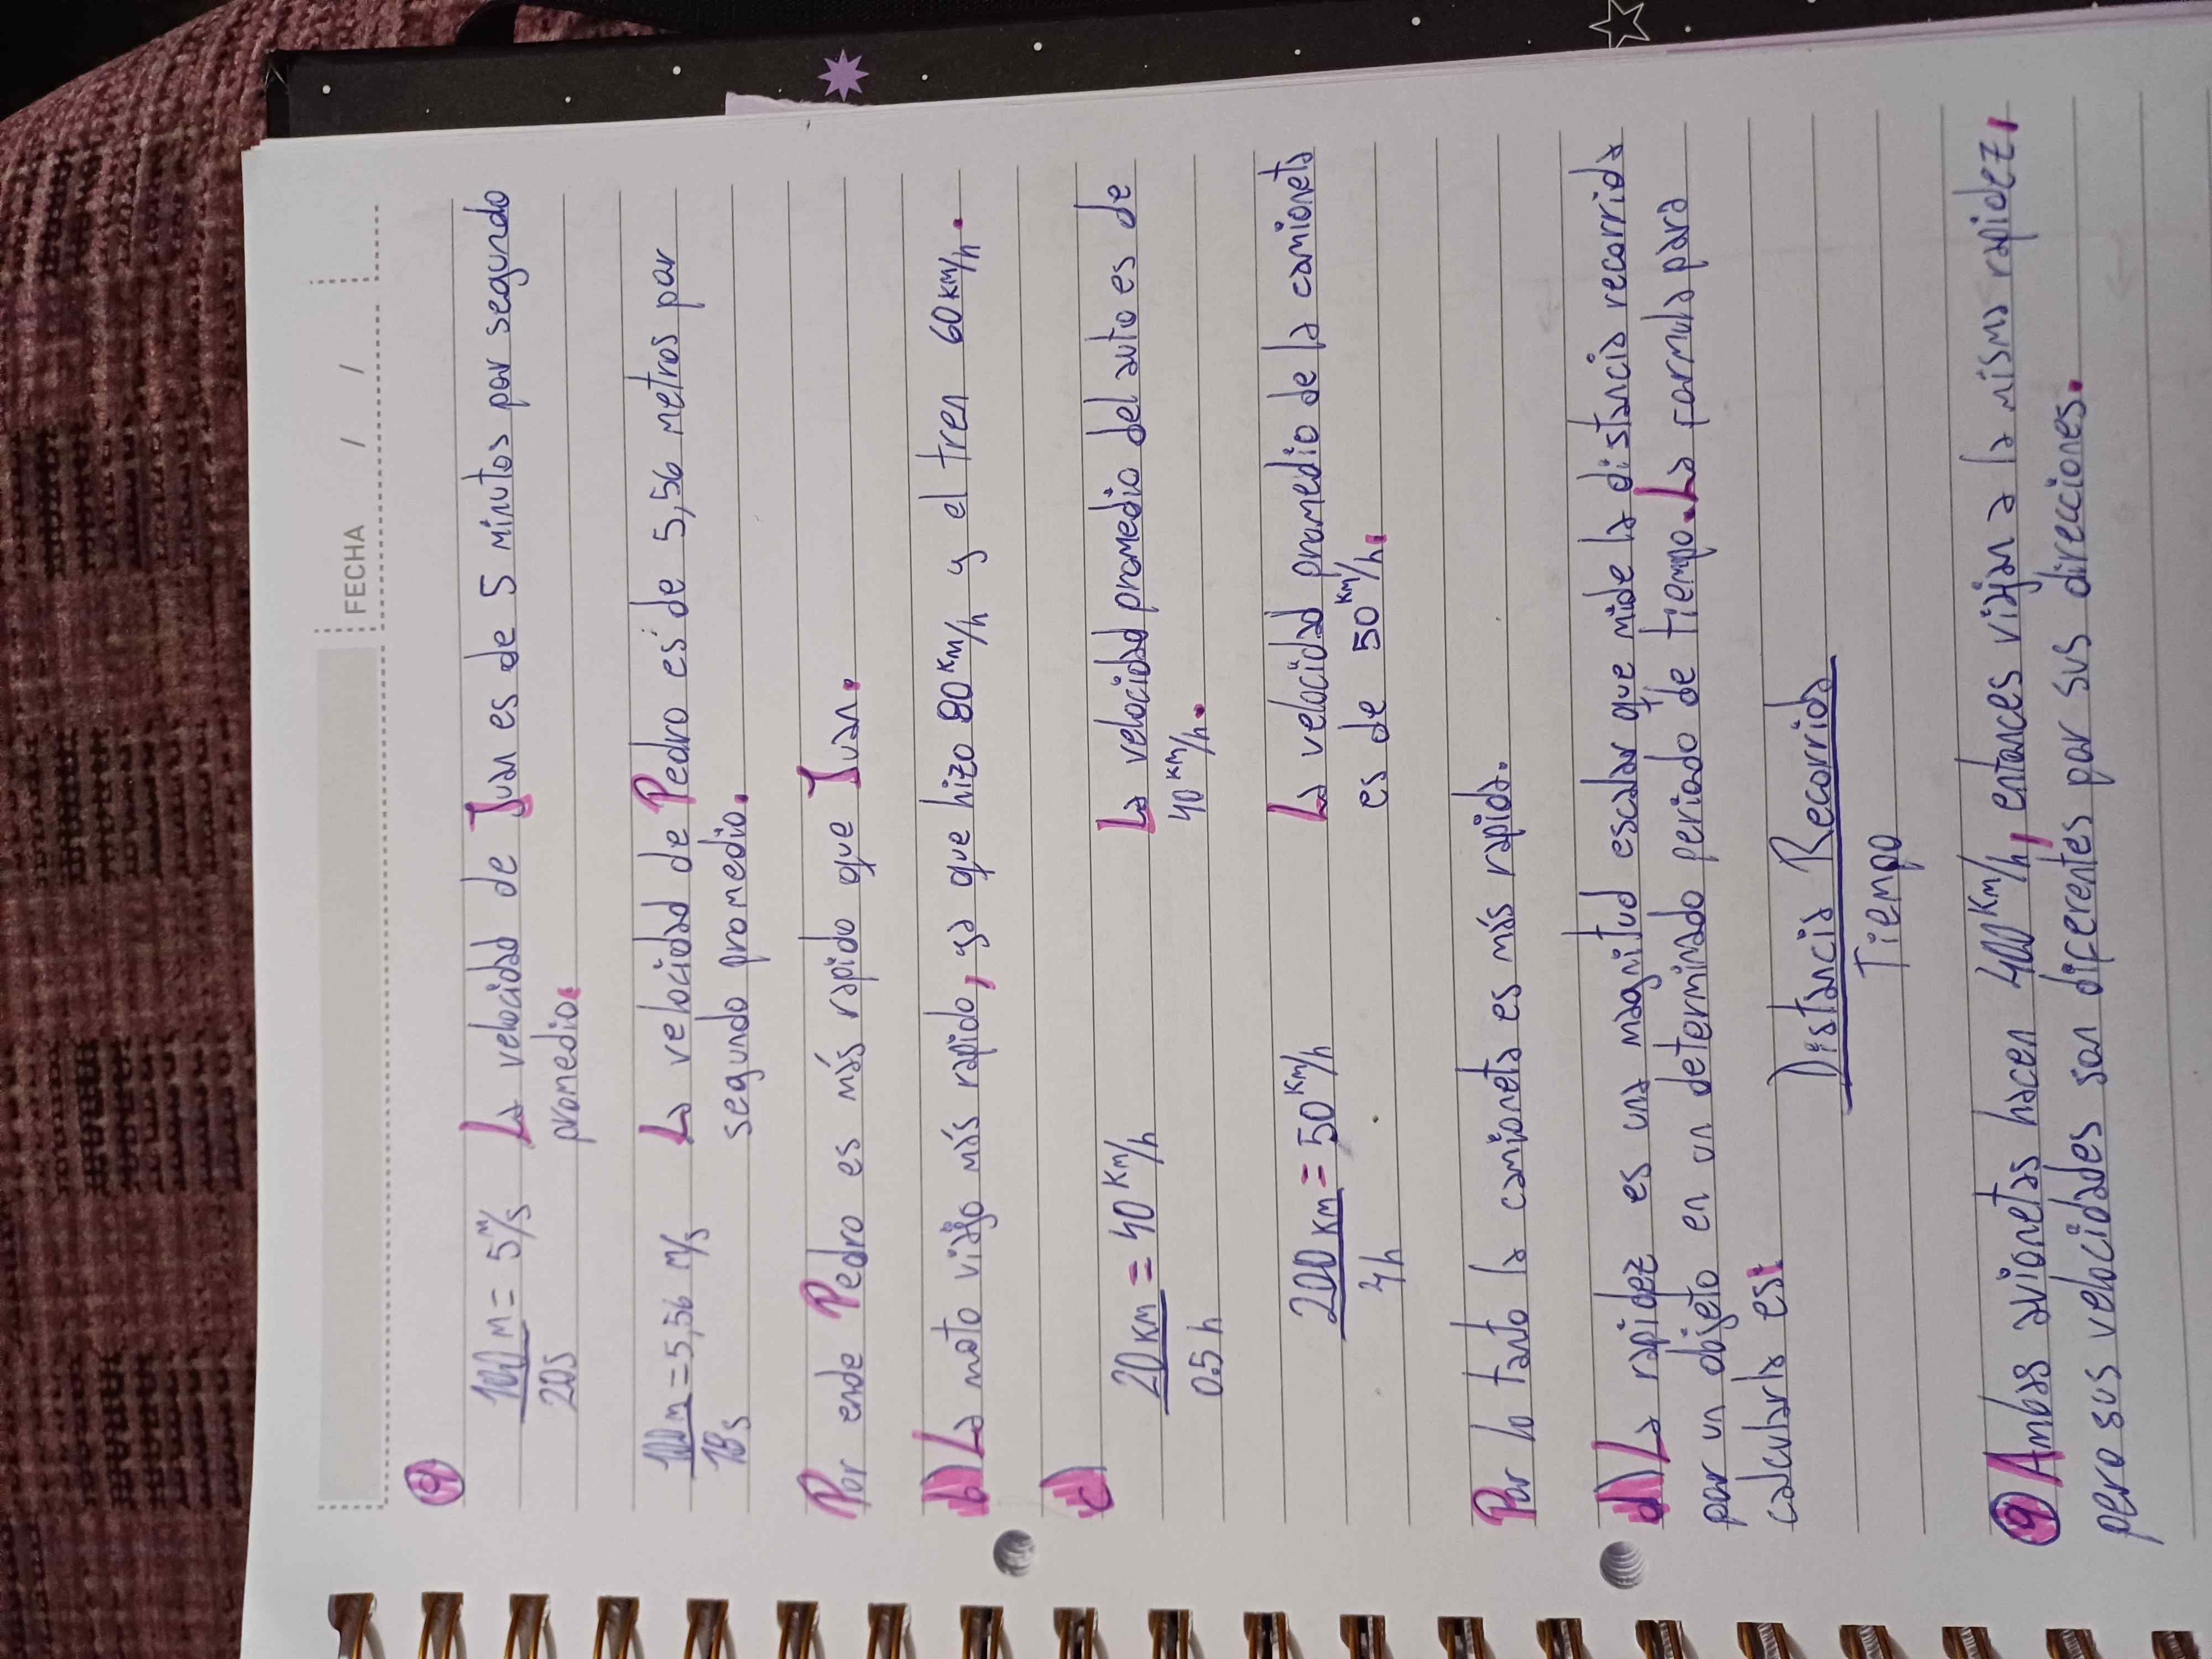 FECHA / /
a)
100 m = 5 m/s La velocidad de Juan es de 5 minutos por segundo
20s promedio.
100 m = 5,56 m/s La velocidad de Pedro es de 5,56 metros por
18s segundo promedio.
Por ende Pedro es más rapido que Juan.
b) La moto viajo más rapido, ya que hizo 80 km/h y el tren 60 km/h.
c)
20 km = 40 km/h La velocidad promedio del auto es de
0.5 h 40 km/h.
200 km = 50 km/h La velocidad promedio de la camioneta
4h es de 50 km/h.
Por lo tanto la camioneta es más rapida.
d) La rapidez es una magnitud escalar que mide la distancia recorrida
por un objeto en un determinado periodo de tiempo. La formula para
calcularla es:
Distancia Recorrida
Tiempo
9) Ambas avionetas hacen 400 km/h, entonces viajan a la misma rapidez,
pero sus velocidades son diferentes por sus direcciones.